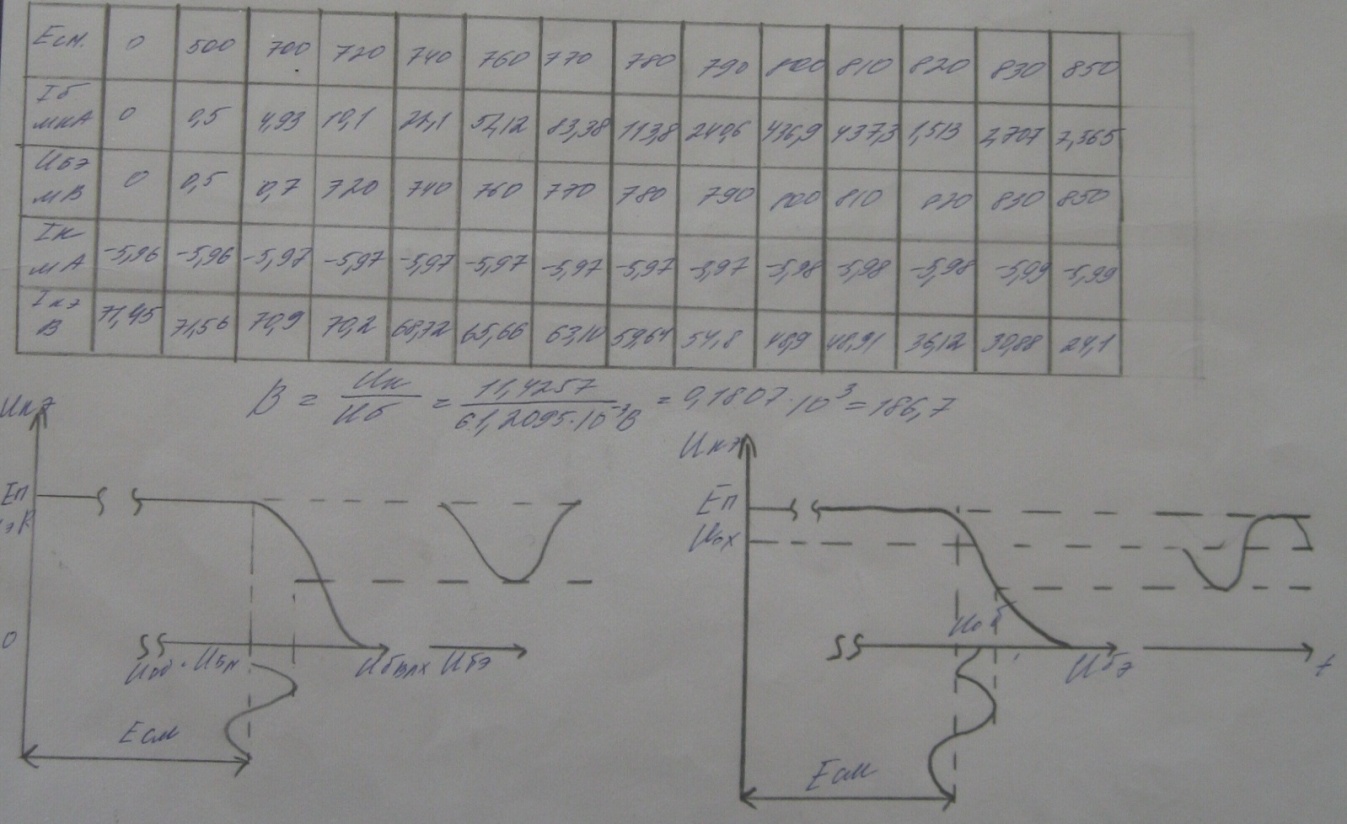 Есм. 0 500 700 720 740 760 770 780 790 800 810 820 830 850
Iб мкА 0 0,5 4,93 10,1 24,1 52,12 83,38 113,8 240,6 436,9 437,3 1,513 2,707 7,365
Uбэ мВ 0 0,5 0,7 720 740 760 770 780 790 800 810 820 830 850
Iк мА -5,96 -5,96 -5,97 -5,97 -5,97 -5,97 -5,97 -5,97 -5,97 -5,98 -5,98 -5,98 -5,99 -5,99
Iкэ В 71,45 71,56 70,9 70,2 68,72 65,66 63,10 59,64 54,8 48,9 48,91 36,12 30,88 24,1
В = Uк/Uб = 11,4257/61,2095·10⁻³В = 0,1807·10³ = 186,7
Uкэ
Еп
0
Uоб · Uбм
Uбмах Uбэ
Есм
Uкэ
Еп
Uох
Uоб
Uбэ
t
Есм